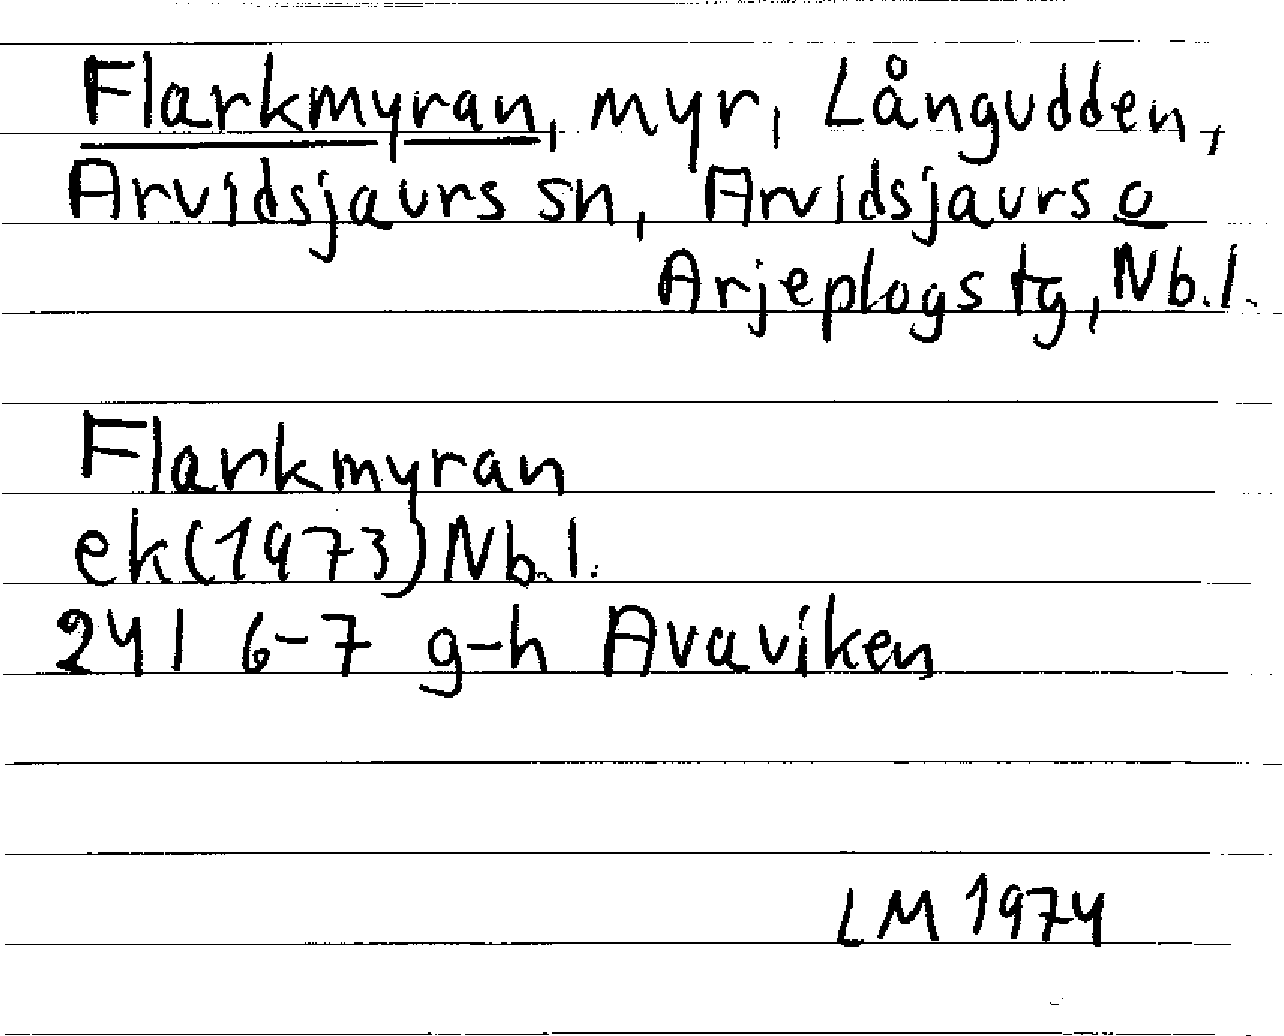 Flarkmyran, myr, Långudden,
Arvidsjaurs sn, Arvidsjaurs o
Arjeplogs tg, Nb.l.
Flarkmyran
ek(1973) Nb.l.
24I 6-7 g-h Avaviken
LM 1974